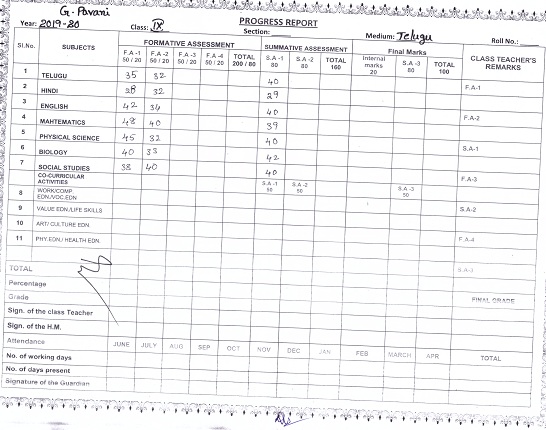 G. Pavani
PROGRESS REPORT
Year: 2019-20 Class: IX Section: Medium: Telugu Roll No.:
Sl.No. SUBJECTS FORMATIVE ASSESSMENT SUMMATIVE ASSESSMENT Final Marks CLASS TEACHER'S REMARKS
F.A -1 50 / 20 F.A -2 50 / 20 F.A -3 50 / 20 F.A -4 50 / 20 TOTAL 200 / 80 S.A -1 80 S.A -2 80 TOTAL 160 Internal marks 20 S.A -3 80 TOTAL 100
1 TELUGU 35 32 40 F.A -1
2 HINDI 28 32 29
3 ENGLISH 42 34 40 F.A -2
4 MAHTEMATICS 48 40 39
5 PHYSICAL SCIENCE 45 32 40 S.A -1
6 BIOLOGY 40 33 42
7 SOCIAL STUDIES 38 40 40 F.A -3
CO-CURRICULAR ACTIVITIES S.A -1 50 S.A -2 50 S.A -3 50
8 WORK/COMP. EDN./VOC.EDN
9 VALUE EDN./LIFE SKILLS S.A -2
10 ART/ CULTURE EDN.
11 PHY.EDN./ HEALTH EDN. F.A -4
TOTAL S.A -3
Percentage
Grade FINAL GRADE
Sign. of the class Teacher
Sign. of the H.M.
Attendance JUNE JULY AUG SEP OCT NOV DEC JAN FEB MARCH APR TOTAL
No. of working days
No. of days present
Signature of the Guardian